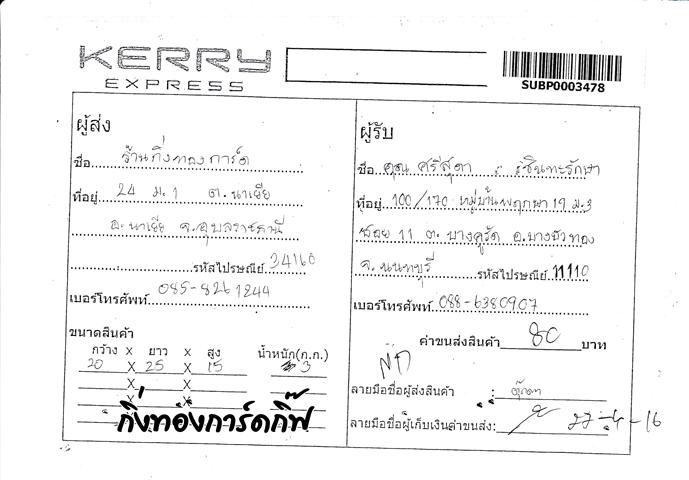 KERRY
EXPRESS
SUBP0003478
ผู้ส่ง
ชื่อ ร้านกิ่งทองการ์ด
ที่อยู่ 24 ม.1 ต.นาเยีย
อ.นาเยีย จ.อุบลราชธานี
รหัสไปรษณีย์ 34160
เบอร์โทรศัพท์ 085-8261244
ขนาดสินค้า
กว้าง x ยาว x สูง น้ำหนัก(ก.ก.)
20 X 25 X 15 3
X X
X X
กิ่งทองการ์ดกิ๊ฟ
ผู้รับ
ชื่อ คุณ ศรีสุดา
ที่อยู่ 100/170 หมู่บ้านพฤกษา 19 ม.3
ซอย 11 ต.บางคูรัด อ.บางบัวทอง
จ.นนทบุรี รหัสไปรษณีย์ 11110
เบอร์โทรศัพท์ 088-6380907
ค่าขนส่งสินค้า 80 บาท
ลายมือชื่อผู้ส่งสินค้า :
ลายมือชื่อผู้เก็บเงินค่าขนส่ง: 22-4-16